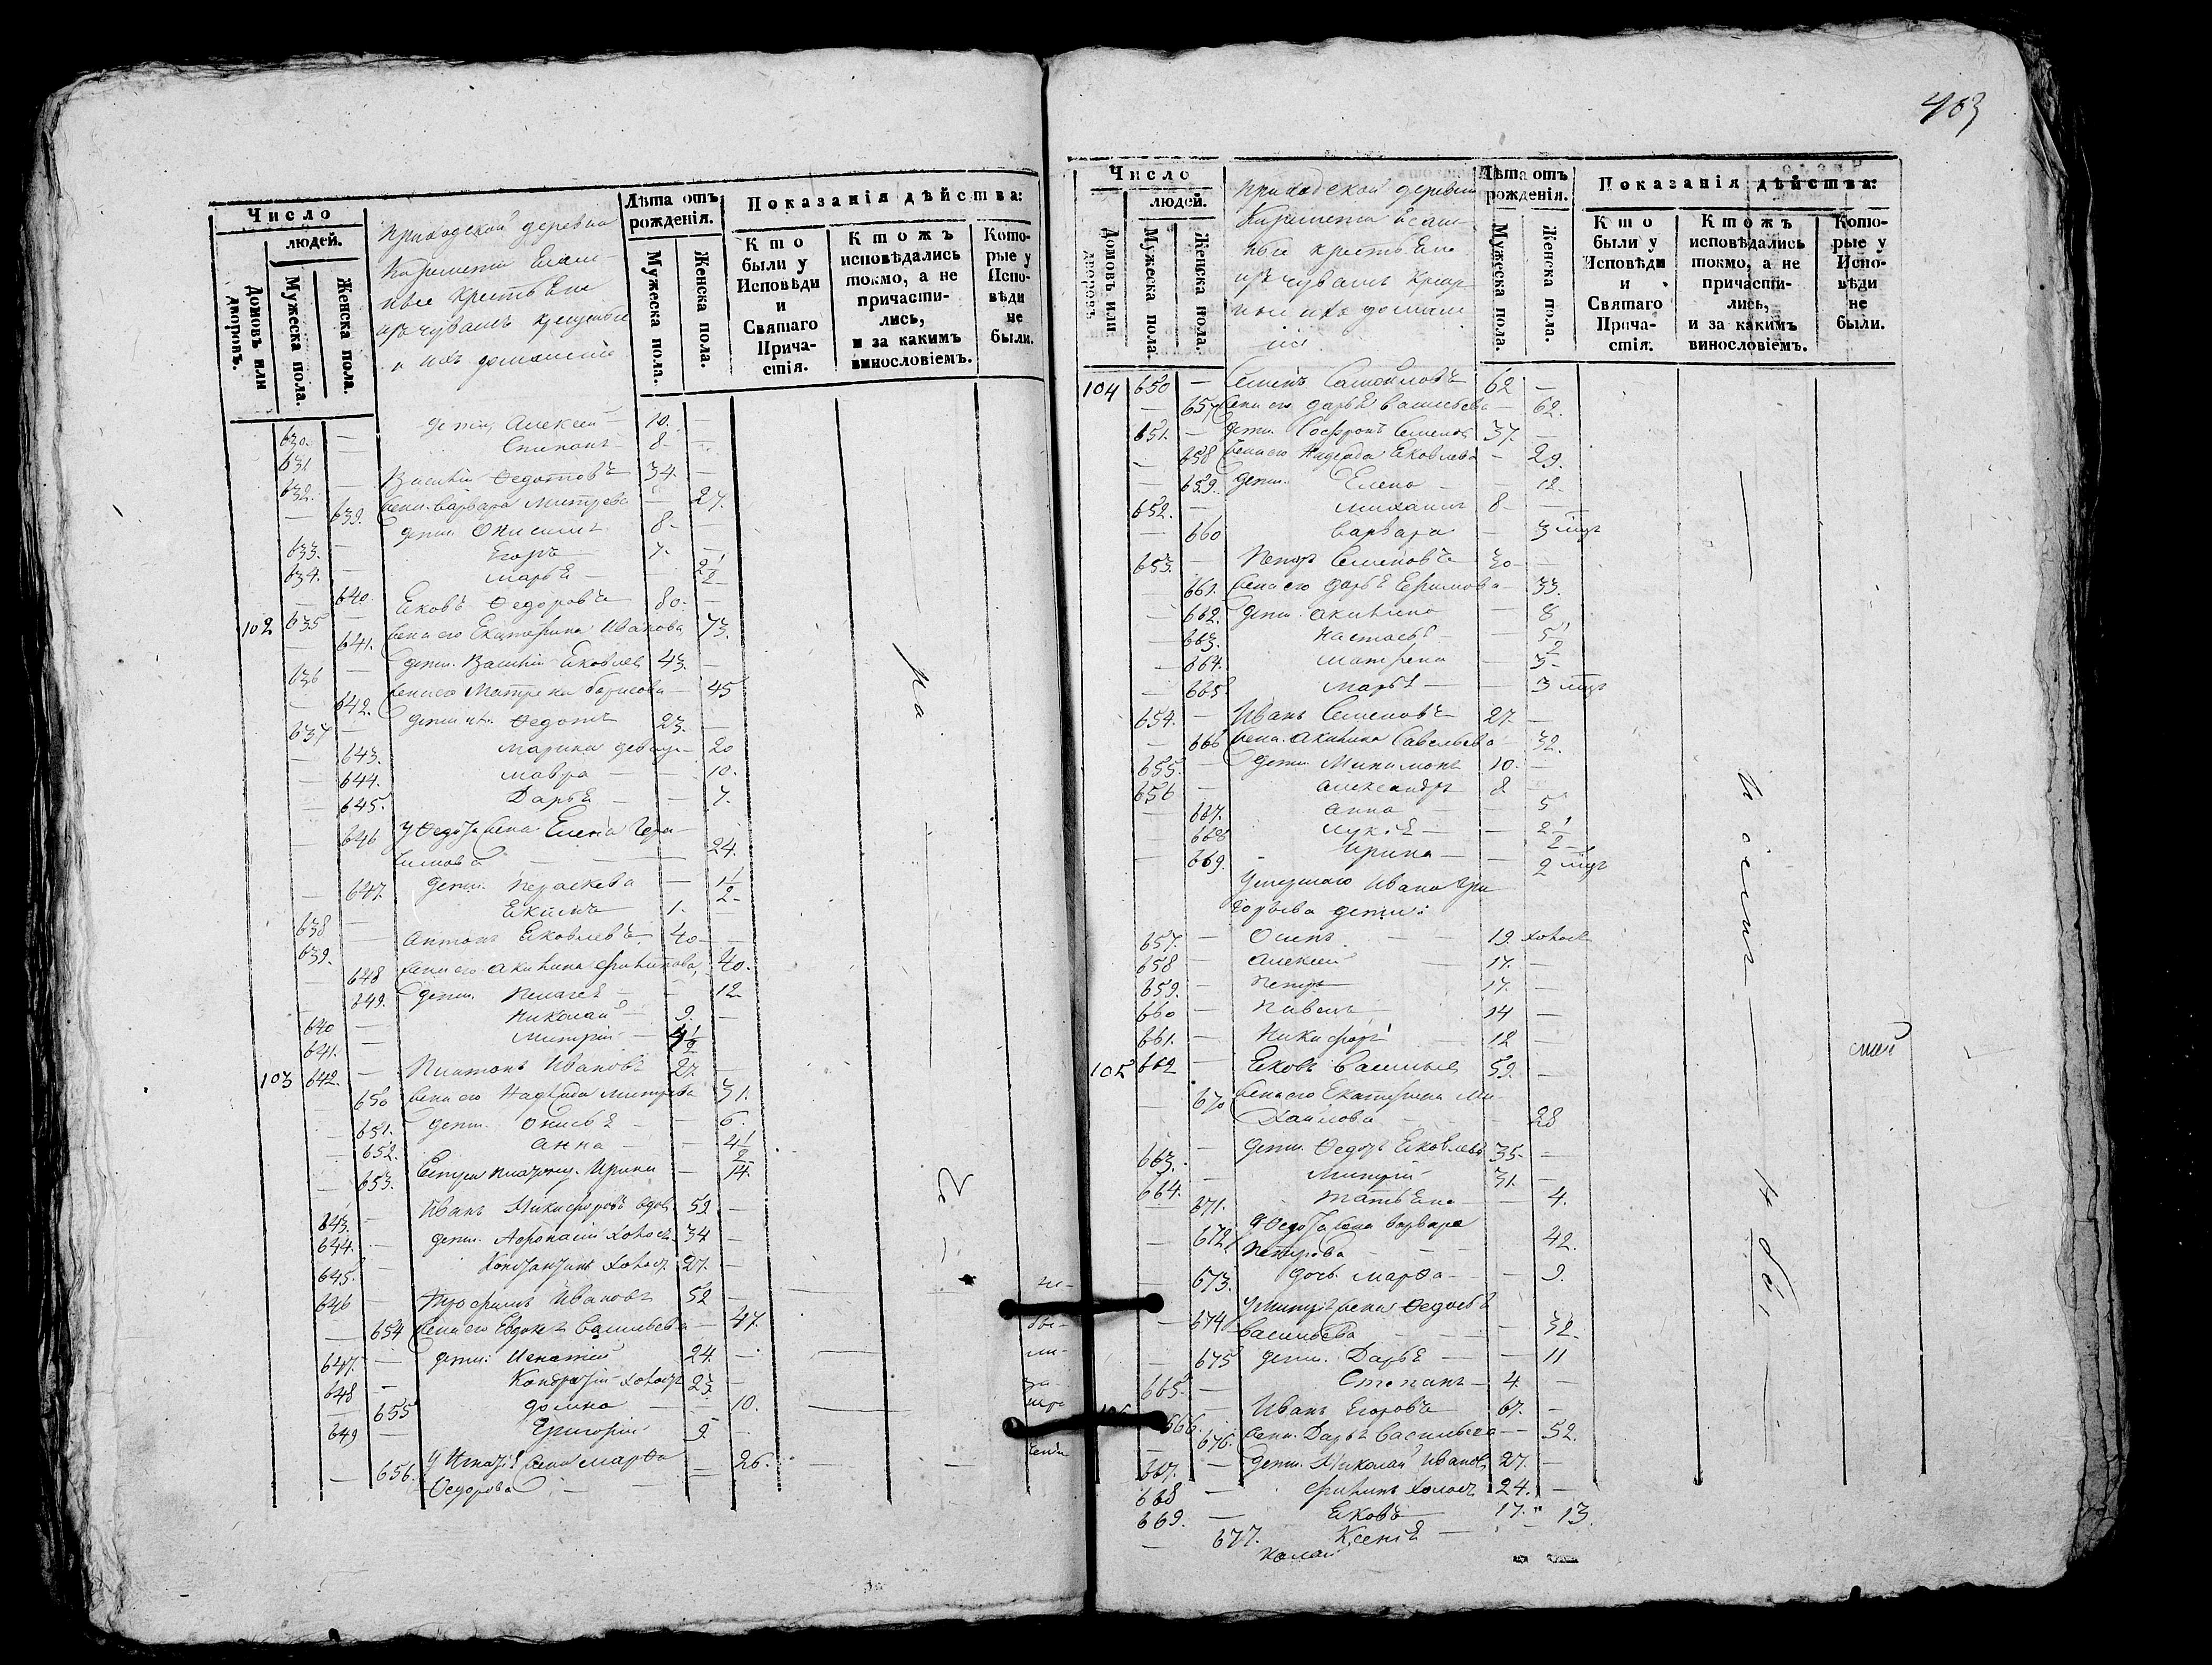 403
Число
людей.
Домовъ или дворовъ.
Мужеска пола.
Женска пола.
приходской деревни
крестьяне
изъ чувашъ
и ихъ домашніе
Лѣта отъ рожденія.
Мужеска пола.
Женска пола.
Показанія дѣйства:
Кто были у Исповѣди и Святаго Причастія.
Ктожъ исповѣдались токмо, а не причастились, и за какимъ винословіемъ.
Которые у Исповѣди не были.
630. — дѣти, Алексѣй 10. —
631 — Степанъ 8 —
632. — Василій Ѳедотовъ 34. —
— 639. жена Варвара Митрева — 27.
633. — дѣти Онисимъ 8 —
634. — Егоръ 7. —
— 640. Марья — 2 1/2
102 635 — Яковъ Ѳедоровъ 80. —
— 641. жена его Екатерина Иванова 73.
636 — дѣти. Василій Яковлевъ 43. —
— 642. жена его Матрена Борисова — 45
637 — дѣти ихъ Ѳедотъ 23. —
— 643. Марина девица — 20
— 644. Мавра — 10.
— 645. Дарья — 7.
— 646 У Ѳедота жена Елена
24.
— 647. дѣти. Пераскева — 1 1/2
638 — Екимъ 1. —
639. — Антонъ Яковлевъ 40 —
— 648 жена его Акилина Филипова 40.
— 649. дѣти. Пелагея — 12
640 — Николай 9. —
641. — Митрій 4 1/2
103 642. — Платонъ Ивановъ 27. —
— 650 жена его Надежда Митрева 31.
— 651. дѣти. Онисья — 6.
— 652. Анна — 4 1/2
— 653. Ирина — 14.
643. — Иванъ Никифоровъ вдов. 59. —
644. — дѣти. Афонасій холост. 34 —
645. — Константинъ холост. 27. —
646 — Трофимъ Ивановъ 52 —
— 654 жена его Евдокея Васильева — 47.
647. — дѣти: Игнатій 24. —
648 — Кондратій холостъ 23. —
— 655 Домна — 10.
649 — Григорій 9. —
— 656. У Игнатія жена Марѳа — 26.
Ѳедорова
Число
людей.
Домовъ или дворовъ.
Мужеска пола.
Женска пола.
приходской деревни
крестьяне
изъ чувашъ
Лѣта отъ рожденія.
Мужеска пола.
Женска пола.
Показанія дѣйства:
Кто были у Исповѣди и Святаго Причастія.
Ктожъ исповѣдались токмо, а не причастились, и за какимъ винословіемъ.
Которые у Исповѣди не были.
104 650 — Семенъ Самойловъ 62 —
— 657 жена его Дарья Васильева — 62.
651. — дѣти. Софронъ Семеновъ 37. —
— 658 жена его Надежда Яковлева — 29.
— 659. дѣти. Елена — 12.
652. — Михаилъ 8 —
— 660 Варвара — 3 мцъ
653. — Петръ Семеновъ 30 —
— 661. жена его Дарья Ефимова — 33.
— 662. дѣти. Акилина — 8
— 663. Настасья — 5 1/2
— 664. Матрена — 3
— 665 Марья — 3 мцъ
654. — Иванъ Семеновъ 27. —
— 666 жена. Акилина Савельева — 32.
655. — дѣти Филимонъ 10. —
656 — Александръ 8 —
— 667. Анна — 5
— 668 Лукея — 2 1/2
— 669. Ирина — 2 мцъ
Умершаго Ивана Гри
горьева дѣти:
657. — Осипъ 19. холост
658 — Алексей 17. —
659. — Петръ 17. —
660 — Павелъ 14 —
661. — Никифоръ 12 —
105 662 — Яковъ Васильевъ 59. —
— 670 жена его Екатерина Ми
хайлова 28
663. — дѣти. Ѳедоръ Яковлевъ 35 —
664. — Митрій 31. —
671. Татьяна — 4.
— 672. У Ѳедора жена Варвара 42.
Петрова
— 673. дочь Марѳа — 9.
— 674. У Митрія жена Ѳедосья
Васильева — 32.
— 675 дѣти. Дарья — 11
665. — Степанъ 4. —
666. — Иванъ Егоровъ 67. —
— 676. жена. Дарья Васильева — 52.
667. — дѣти. Николай Ивановъ 27. —
668 — Филипъ холостъ 24. —
669. — Яковъ 17.
— 677. Ксенія — 13.